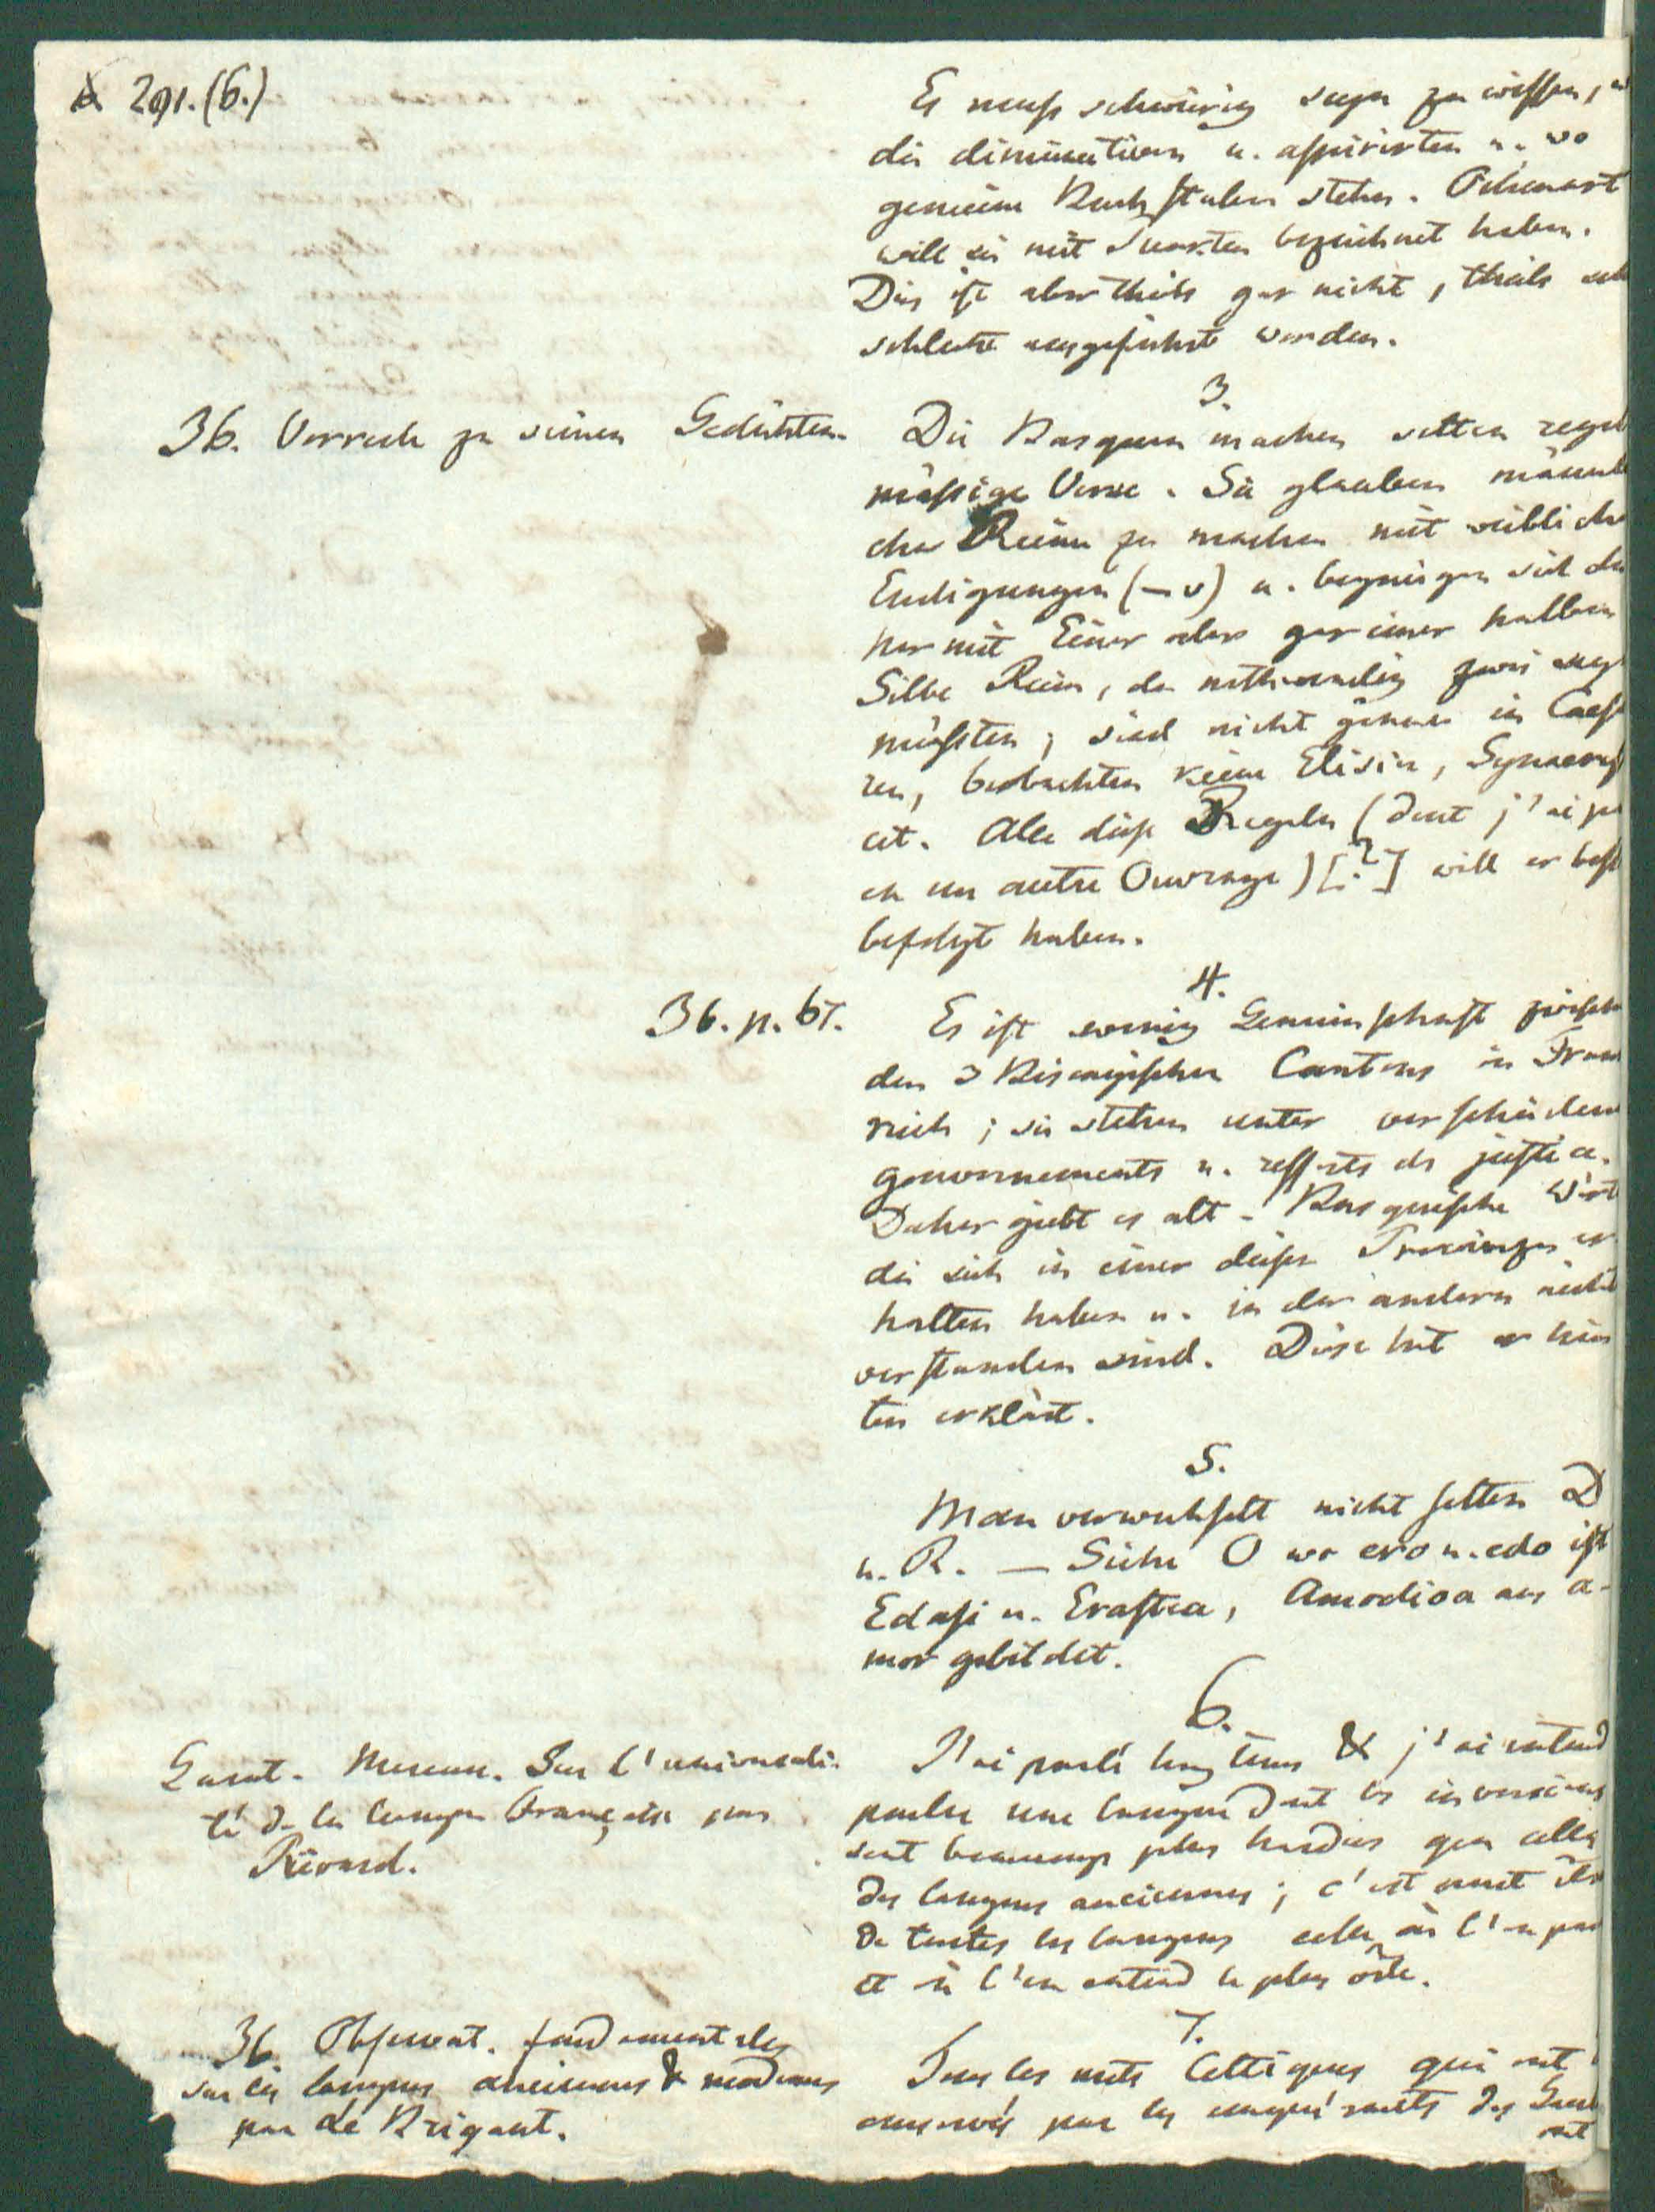 291. (6.)
Es muss schwürig seyn zu wissen,
die diminutiven u. aspirirten u. wo
gemeine Buchstaben stehn. Oihenart
will sie mit Puncten bezeichnet haben.
Dies ist aber theils gar nicht, theils
schlecht ausgeführt worden.
3.
36. Vorrede zu seinen Gedichten.
Die Basquen machen selten regel
mässige Verse. Sie glauben männli
che Reime zu machen mit weibliche
Endigungen (– ᴗ) u. begnügen sich da
her mit Einer oder gar einer halben
Silbe Reim, da nothwendig zwei seyn
müssten; sind nicht genau in Caesu
ren, beobachten keine Elision, Synaeres
cet. Alle diese Regeln (dont j'ai
en un autre Ouvrage) [?] will er
befolgt haben.
4.
36. p. 67.
Es ist wenig Gemeinschaft zwisch
den 3 Biscayischen Cantons in Frank
reich; sie stehen unter verschieden
gouvernements u. ressorts de justice.
Daher giebt es alt-Basquische Wört
die sich in einer dieser Provinzen er
halten haben u. in der andern nicht
verstanden sind. Diese hat er hin
ten erklärt.
5.
Man verwechselt nicht selten D
u. R. — Siehe O wo ero u. edo ist
Edasi u. Erastea, Amodioa aus a-
mor gebildet.
6.
Garat. Mercure. Sur l'universali-
té de la langue française par
Rivarol.
J'ai parlé long tems & j'ai entend
parler une langue dont les inversions
sont beaucoup plus hardies que celles
des langues anciennes; c'est
de toutes les langues celle où l'on par
et où l'on entend le plus vite.
7.
36. Observat. fondamentales
sur les langues anciennes & modernes
par Le Brigant.
Tous les mots Celtiques qui ont
conservés par les conquérants des Gaul
ont